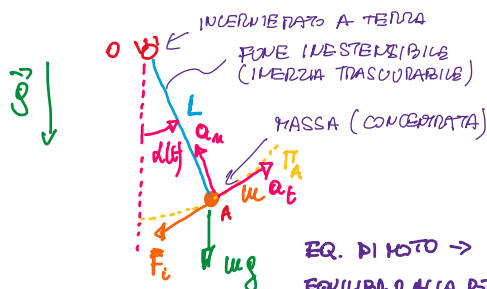 INCERNIERATO A TERRA
O
FUNE INESTENSIBILE
(INERZIA TRASCURABILE)
g
L
MASSA (CONCENTRATA)
an
α(t)
ΠA
m
at
A
Fi
mg
EQ. DI MOTO →